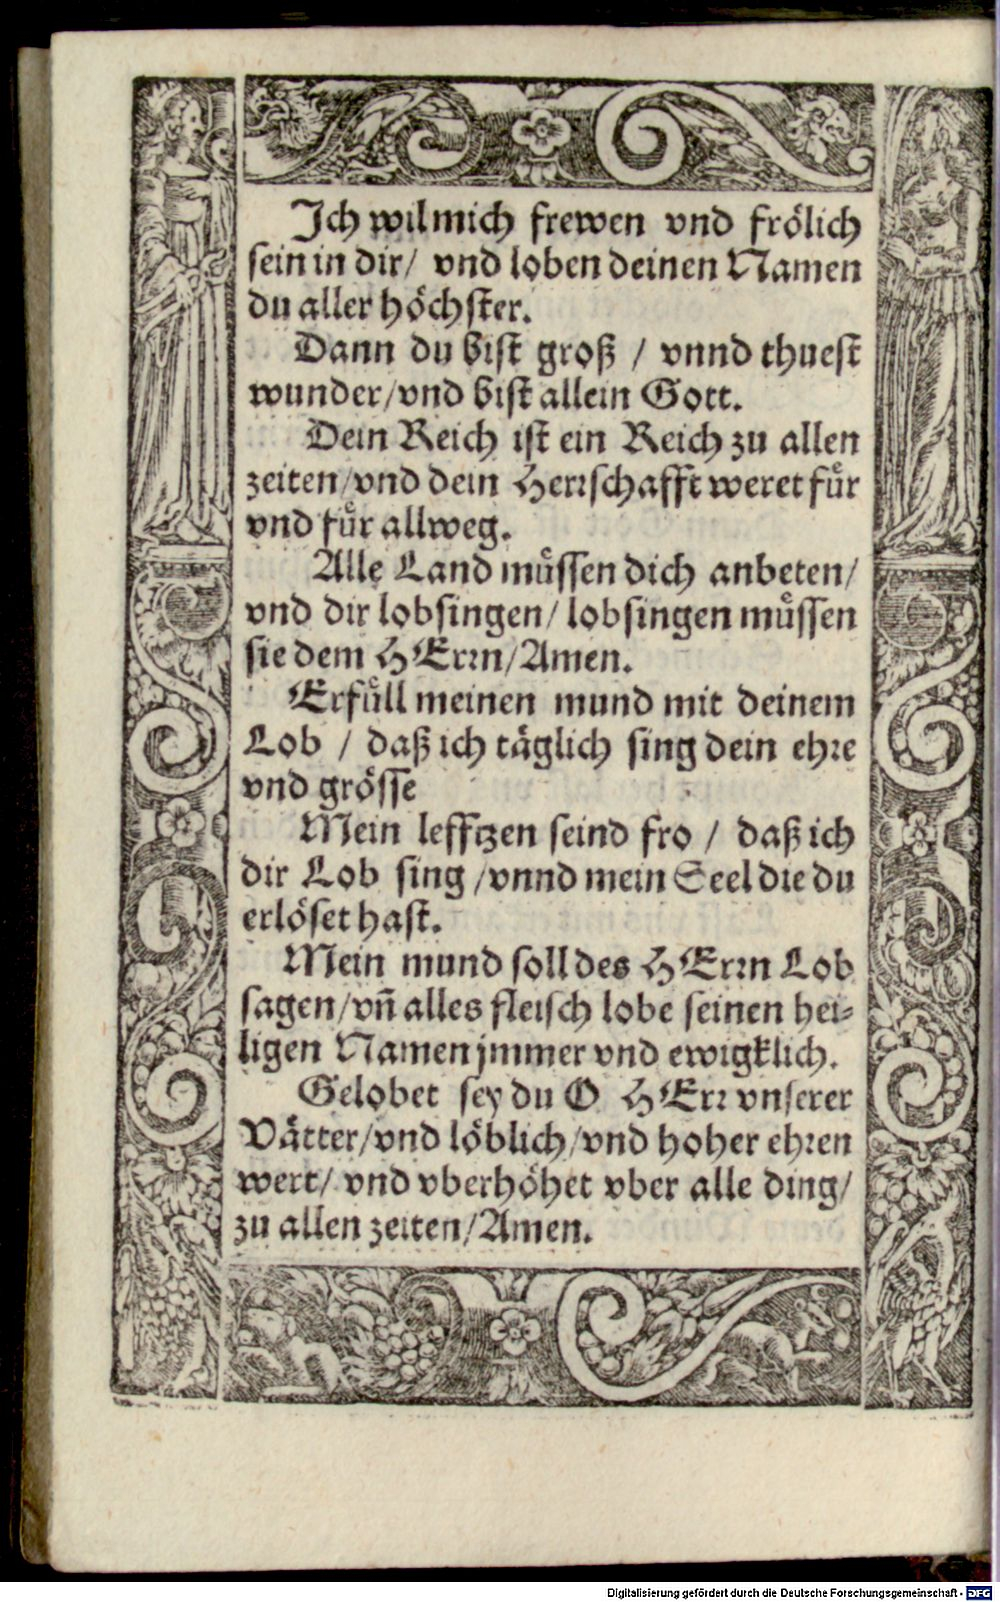 Ich wil mich frewen vnd frölich
sein in dir/ vnd loben deinen Namen
du aller höchster.
Dann du bist groß / vnnd thuest
wunder/vnd bist allein Gott.
Dein Reich ist ein Reich zu allen
zeiten/vnd dein Herrschafft weret fuͤr
vnd fuͤr allweg.
Alle Land muͤssen dich anbeten/
vnd dir lobsingen/ lobsingen muͤssen
sie dem HErrn/Amen.
Erfuͤll meinen mund mit deinem
Lob / daß ich täglich sing dein ehre
vnd grösse
Mein lefftzen seind fro / daß ich
dir Lob sing /vnnd mein Seel die du
erlöset hast.
Mein mund soll des HErrn Lob
sagen/vn̄ alles fleisch lobe seinen hei=
ligen Namen jmmer vnd ewigklich.
Gelobet sey du O HErr vnserer
Vätter/vnd löblich/vnd hoher ehren
wert/ vnd vberhöhet vber alle ding/
zu allen zeiten/Amen.
Digitalisierung gefördert durch die Deutsche Forschungsgemeinschaft - DFG